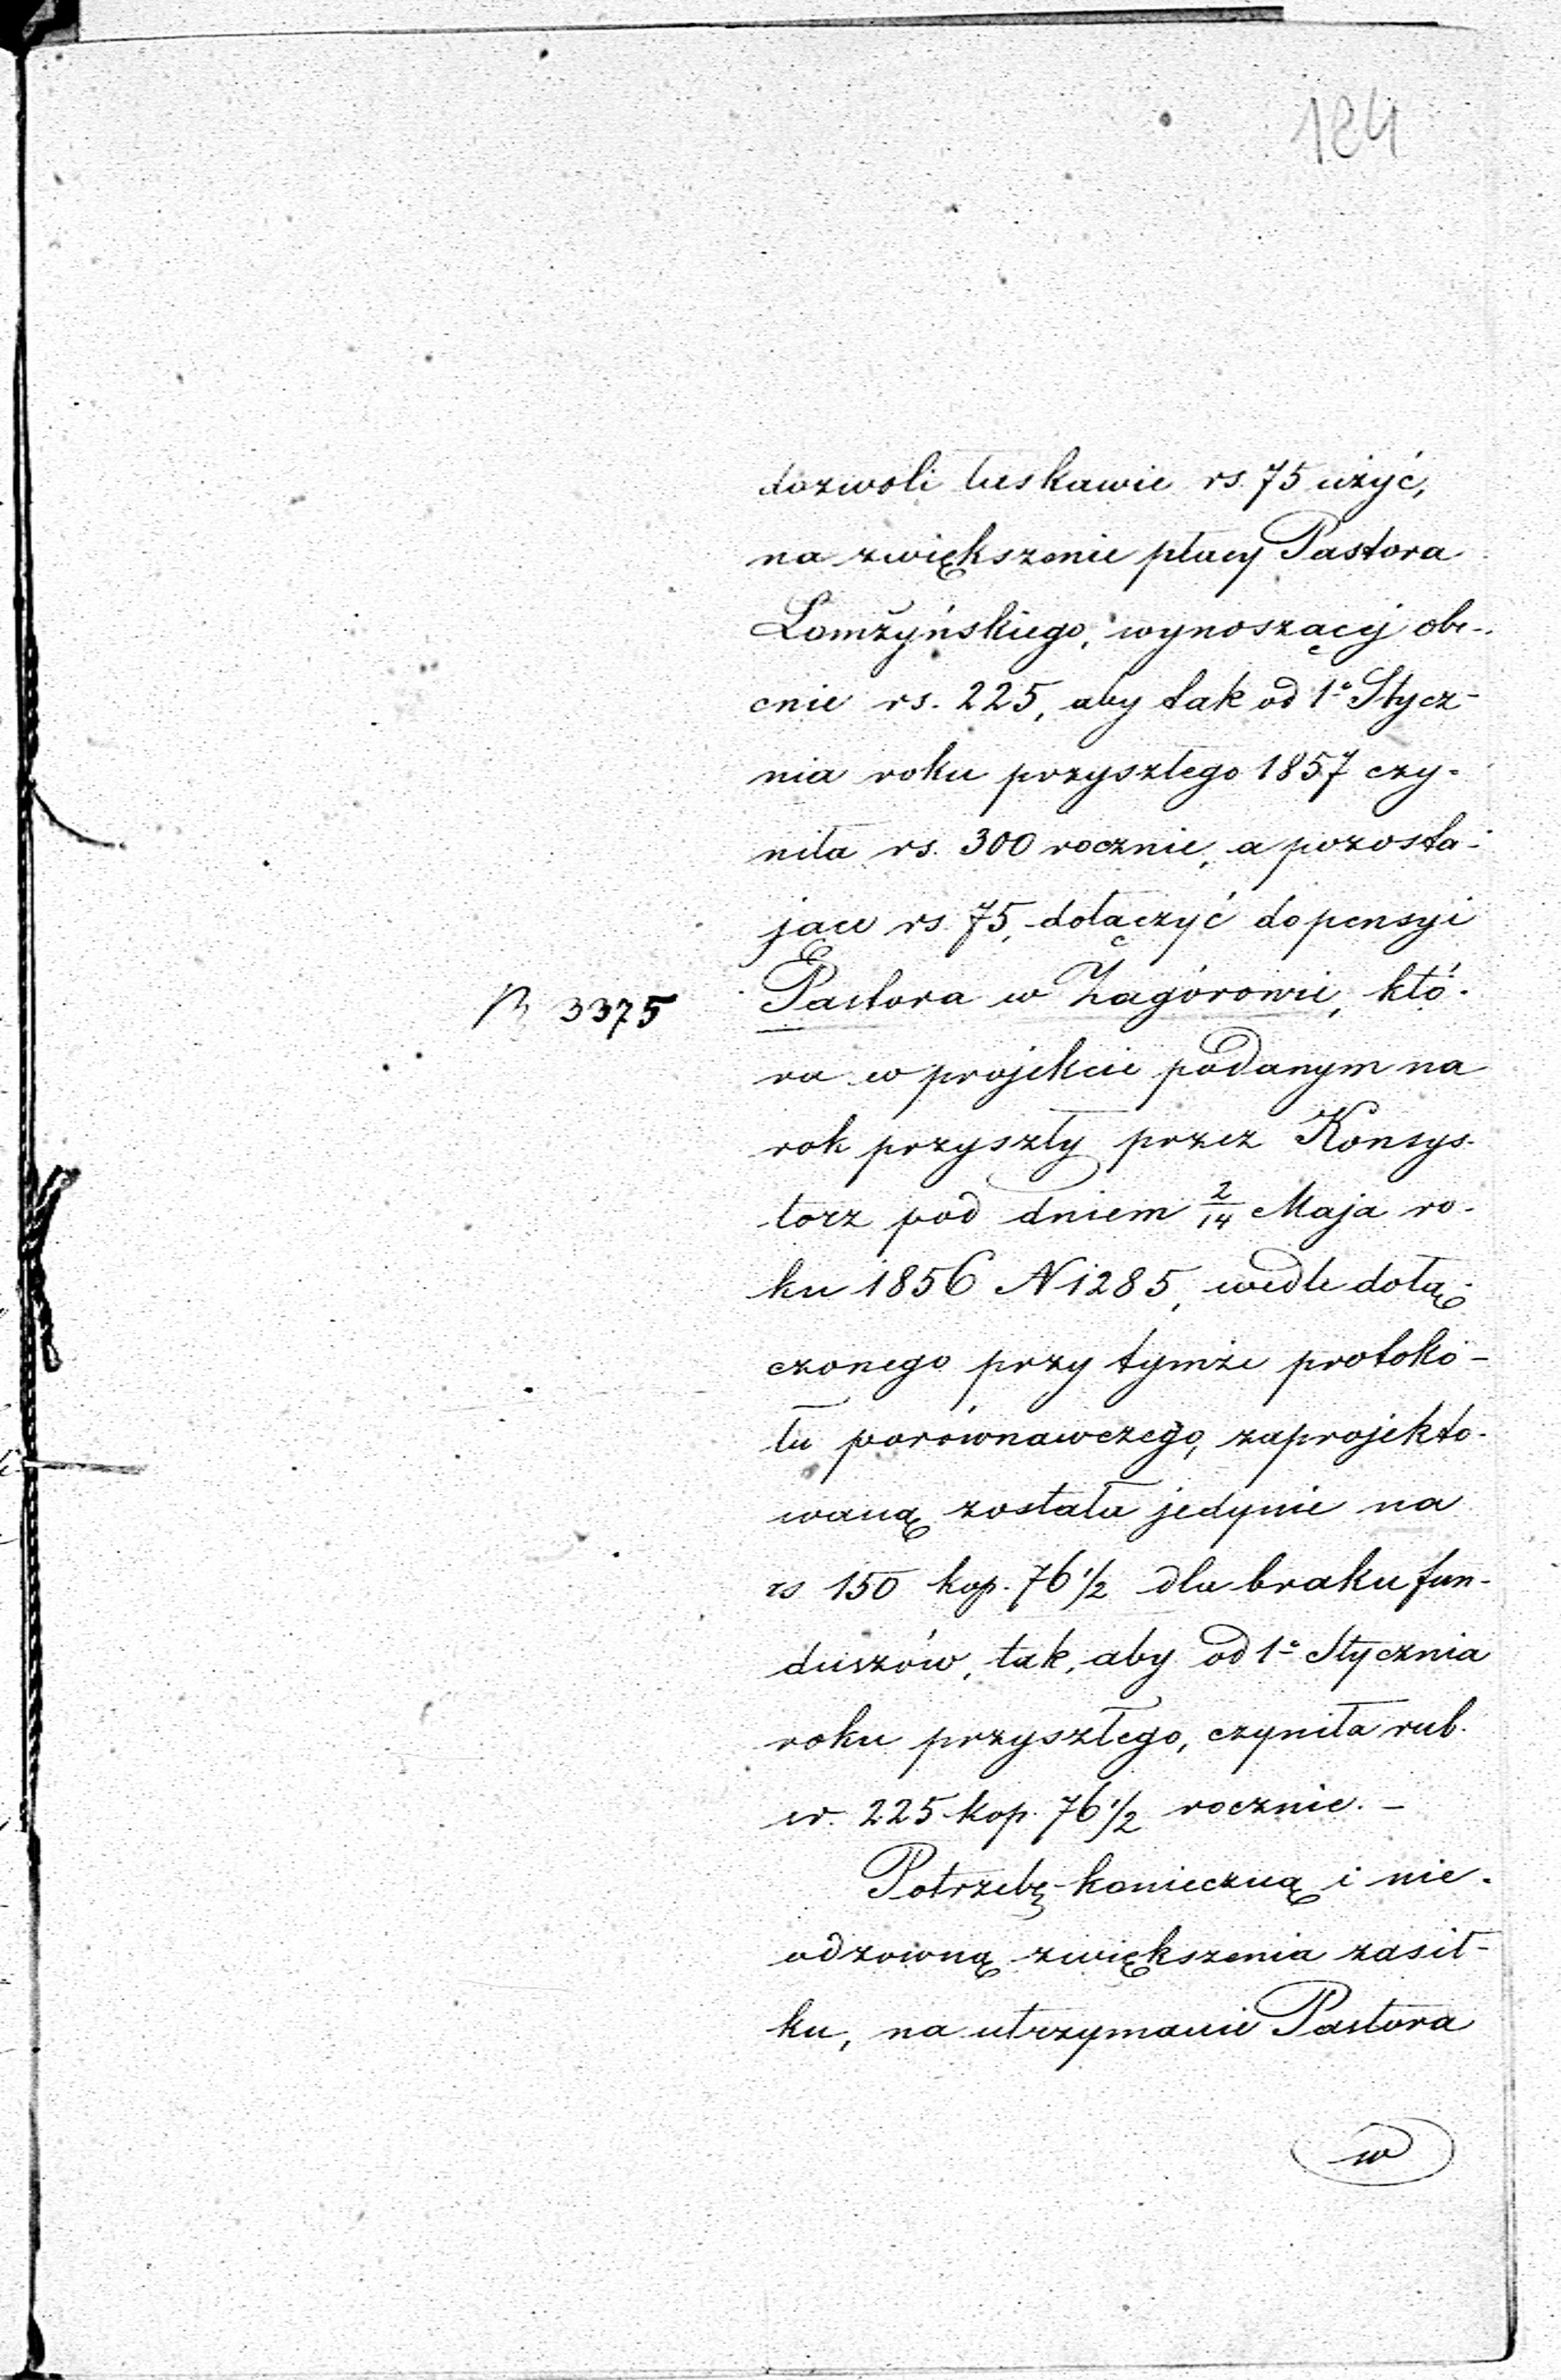 184
dozwoli łaskawie rs. 75 użyć,
na zwiększenie płacy Pastora
Łomżyńskiego, wynoszącej obe-
cnie rs. 225, aby tak od 1º Stycz-
nia roku przyszłego 1857 czy-
niła rs. 300 rocznie, a pozosta-
jące rs. 75, dołączyć do pensyi
Pastora w Zagórowie, któ-
3375
ra w projekcie podanym na
rok przyszły przez Konsys-
torz pod dniem 2/14 Maja ro-
ku 1856 N 1285, wedle dołą-
czonego przy tymże protokó-
łu porównawczego, zaprojekto-
waną została jedynie na
rs 150 kop. 76 1/2 dla braku fun-
duszów, tak, aby od 1º Stycznia
roku przyszłego, czyniła rub.
sr. 225 kop. 76 1/2 rocznie. -
Potrzebę konieczną i nie-
odzowną zwiększenia zasił-
ku, na utrzymanie Pastora
w